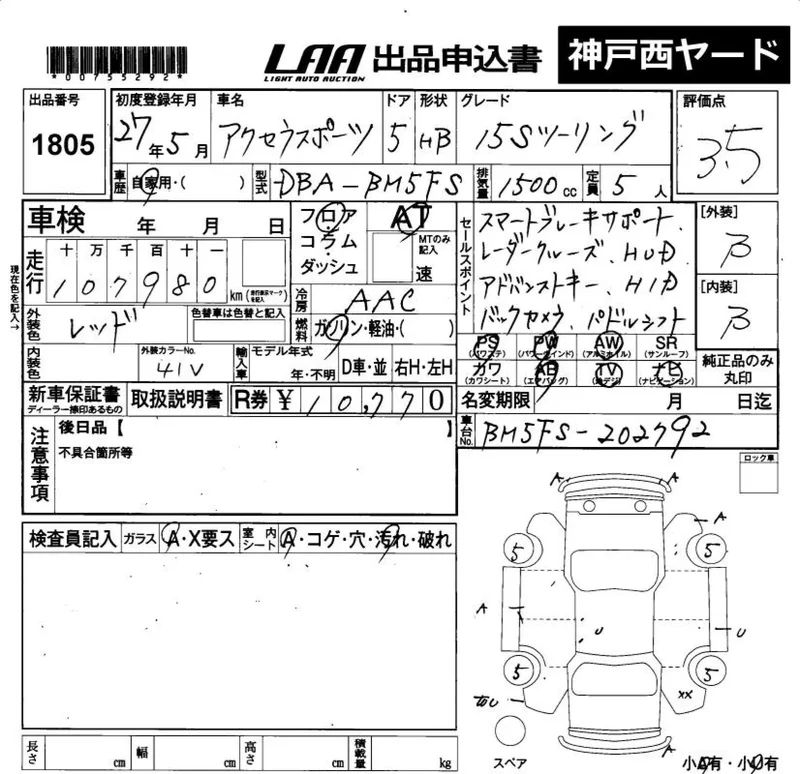 *00755292*
LAA 出品申込書 神戸西ヤード
LIGHT AUTO AUCTION
出品番号 初度登録年月 車名 ドア 形状 グレード 評価点
1805 27年5月 アクセラスポーツ 5 HB 15Sツーリング 3.5
車歴 自家用・( ) 型式 DBA-BM5FS 排気量 1500cc 定員 5人
車検 年 月 日 フロア AT セールスポイント スマートブレーキサポート、 [外装]
コラム MTのみ記入 レーダークルーズ、HUD B
ダッシュ 速 アドバンストキー、HID [内装]
走行 十万千百十一 バックカメラ、パドルシフト B
107980 km (走行表示マークを記入) 冷房 AAC
現在色を記入→
外装色 レッド 色替車は色替と記入 燃料 ガソリン・軽油・( )
PS PW AW SR
(パワステ) (パワーウインド) (アルミホイル) (サンルーフ)
カワ AB TV ナビ 純正品のみ丸印
(カワシート) (エアバッグ) (地デジ) (ナビゲーション)
内装色 外装カラーNo. 41V 輸入車 モデル年式 年・不明 D車・並 右H・左H
新車保証書 ディーラー捺印あるもの 取扱説明書 R券 ¥10,770 名変期限 月 日迄
車台No. BM5FS-202792
注意事項 後日品【 】
不具合箇所等
ロック車
検査員記入 ガラス A・X要ス 室内シート A・コゲ・穴・汚れ・破れ
A A
A
5 5
A U
U
5 5
XX
A
スペア 小A有・小U有
長さ cm 幅 cm 高さ cm 積載量 kg